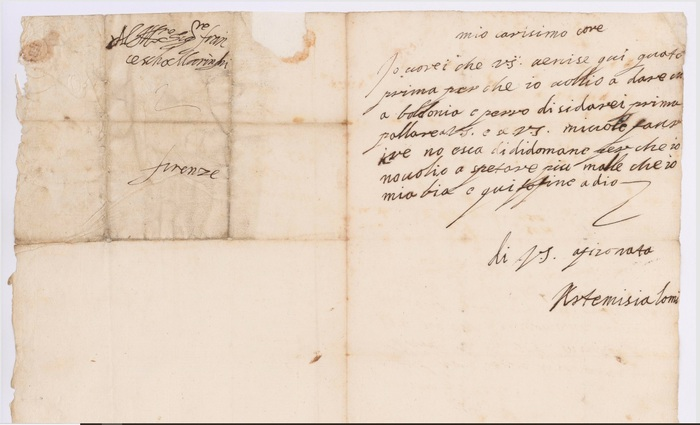 Sre fran
cescho M
firenze
mio carisimo core
Io vorei che vs. venise qui quato
prima perche io vollio adare
a bolonia e perro disidarei prima
parlare a VS. e a vs. mi vole favr
ire no esca di didomane perche io
no volio aspetare piu malle che io
mi abia e qui fo fine adio
di VS. afizonata
Artemisia lomi